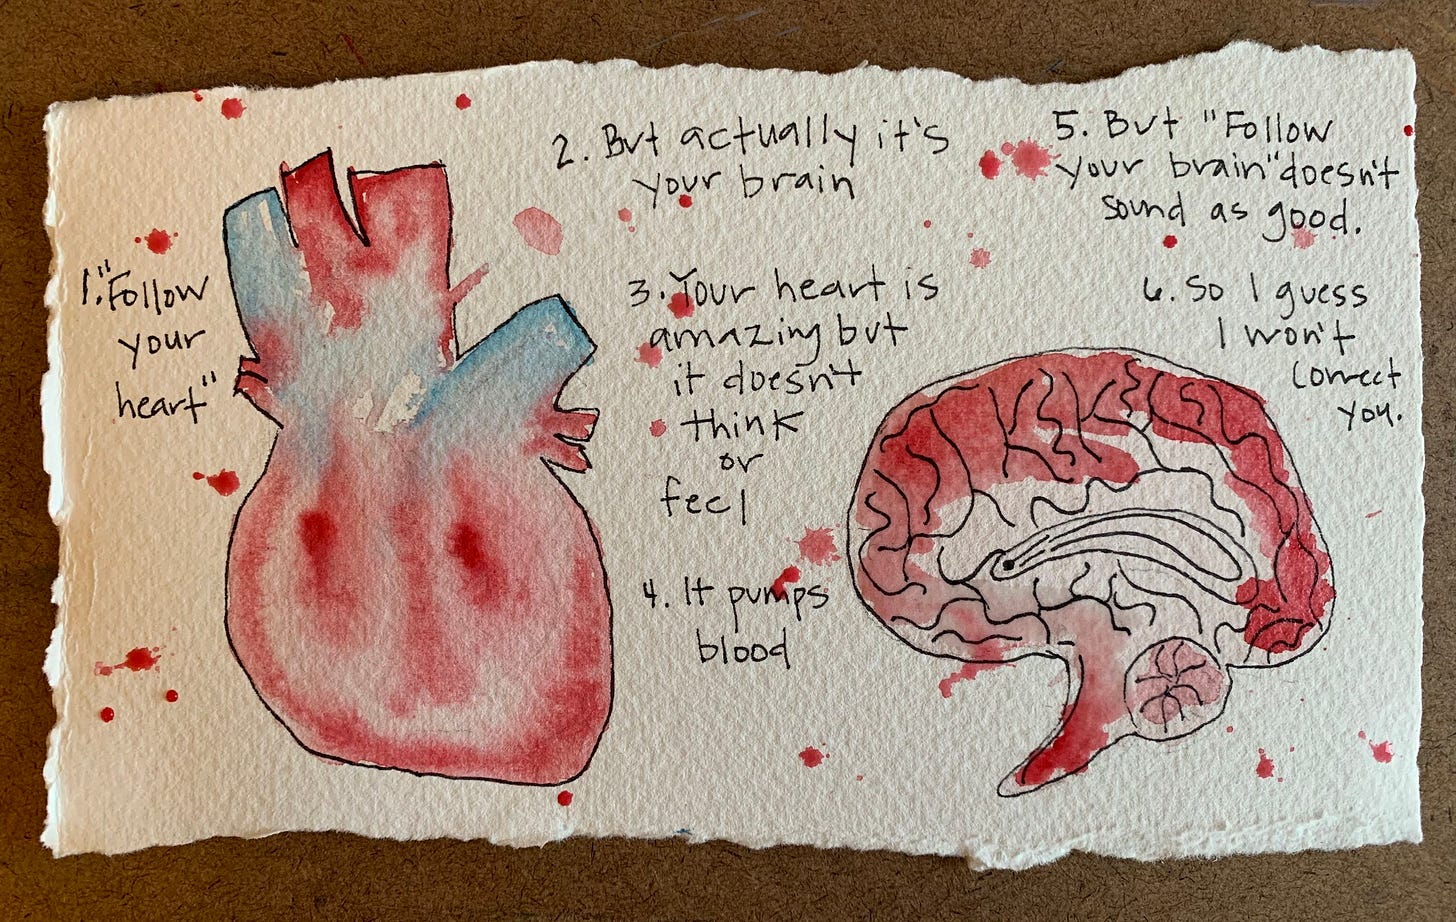 1. "Follow
your
heart"
2. But actually it's
your brain
3. Your heart is
amazing but
it doesn't
think
or
feel
4. It pumps
blood
5. But "Follow
your brain" doesn't
sound as good.
6. So I guess
I won't
correct
you.